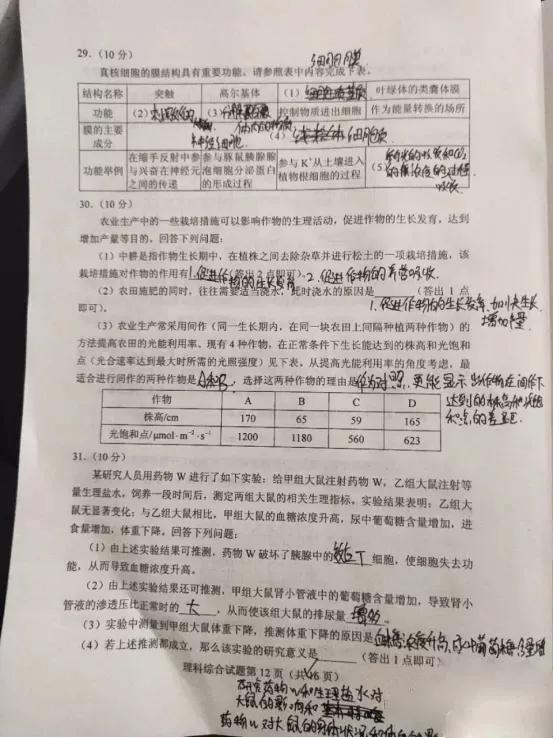 29.（10 分）
细胞膜
真核细胞的膜结构具有重要功能。请参照表中内容完成下表。
结构名称 突触 高尔基体 （1） 叶绿体的类囊体膜
功能 （2） （3） 控制物质进出细胞 作为能量转换的场所
膜的主要成分 （4）
功能举例 在缩手反射中参与兴奋在神经元之间的传递 参与豚鼠胰腺腺泡细胞分泌蛋白的形成过程 参与 K⁺从土壤进入植物根细胞的过程 （5）
30.（10 分）
农业生产中的一些栽培措施可以影响作物的生理活动，促进作物的生长发育，达到
增加产量等目的。回答下列问题：
（1）中耕是指作物生长期中，在植株之间去除杂草并进行松土的一项栽培措施，该
栽培措施对作物的作用有1.促进作物的生长发育（答出 2 点即可）。2.促进作物的营养吸收.
（2）农田施肥的同时，往往需要适当浇水，此时浇水的原因是（答出 1 点
即可）。1.促进作物的生长发育，加快生长，
增加产量
（3）农业生产常采用间作（同一生长期内，在同一块农田上间隔种植两种作物）的
方法提高农田的光能利用率。现有 4 种作物，在正常条件下生长能达到的株高和光饱和
点（光合速率达到最大时所需的光照强度）见下表。从提高光能利用率的角度考虑，最
适合进行间作的两种作物是A和B，选择这两种作物的理由是作为对照，更能显示出作物在间作下
达到的株高和光饱
和点的差距.
作物 A B C D
株高/cm 170 65 59 165
光饱和点/μmol·m⁻²·s⁻¹ 1200 1180 560 623
31.（10 分）
某研究人员用药物 W 进行了如下实验：给甲组大鼠注射药物 W，乙组大鼠注射等
量生理盐水，饲养一段时间后，测定两组大鼠的相关生理指标。实验结果表明：乙组大
鼠无显著变化；与乙组大鼠相比，甲组大鼠的血糖浓度升高，尿中葡萄糖含量增加，进
食量增加，体重下降。回答下列问题：
（1）由上述实验结果可推测，药物 W 破坏了胰腺中的效应T细胞，使细胞失去功
能，从而导致血糖浓度升高。
（2）由上述实验结果还可推测，甲组大鼠肾小管液中的葡萄糖含量增加，导致肾小
管液的渗透压比正常时的大，从而使该组大鼠的排尿量增多。
（3）实验中测量到甲组大鼠体重下降，推测体重下降的原因是血糖浓度升高，尿中葡萄糖含量增
（4）若上述推测都成立，那么该实验的研究意义是（答出 1 点即可）。
理科综合试题第 12 页（共16 页）
研究药物W和生理盐水对
大鼠的影响和
药物W对大鼠的身体状况和